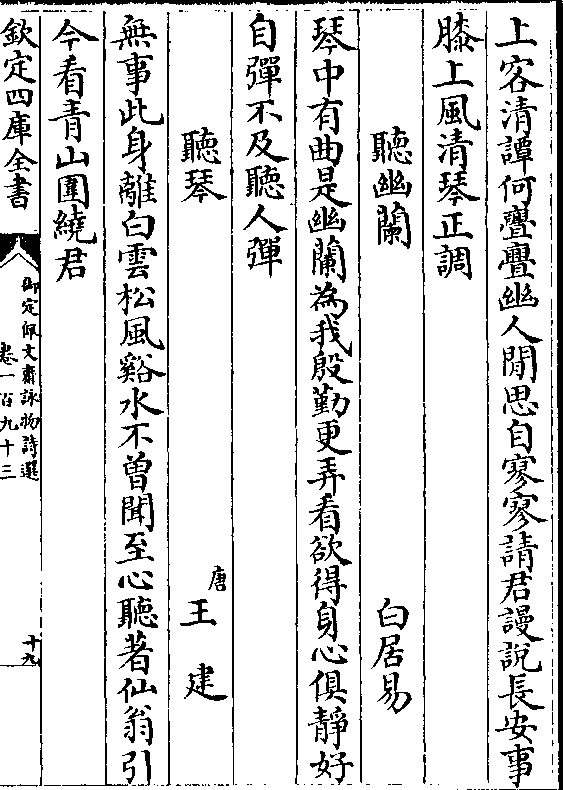 上客清譚何亹亹幽人閒思自寥寥請君謾說長安事
膝上風清琴正調
聽幽蘭 白居易
琴中有曲是幽蘭為我殷勤更弄看欲得身心俱靜好
自彈不及聽人彈
聽琴 唐 王建
無事此身離白雲松風谿水不曾聞至心聽著仙翁引
今看青山圍繞君
欽定四庫全書 御定佩文齋詠物詩選 卷一百九十三 十九